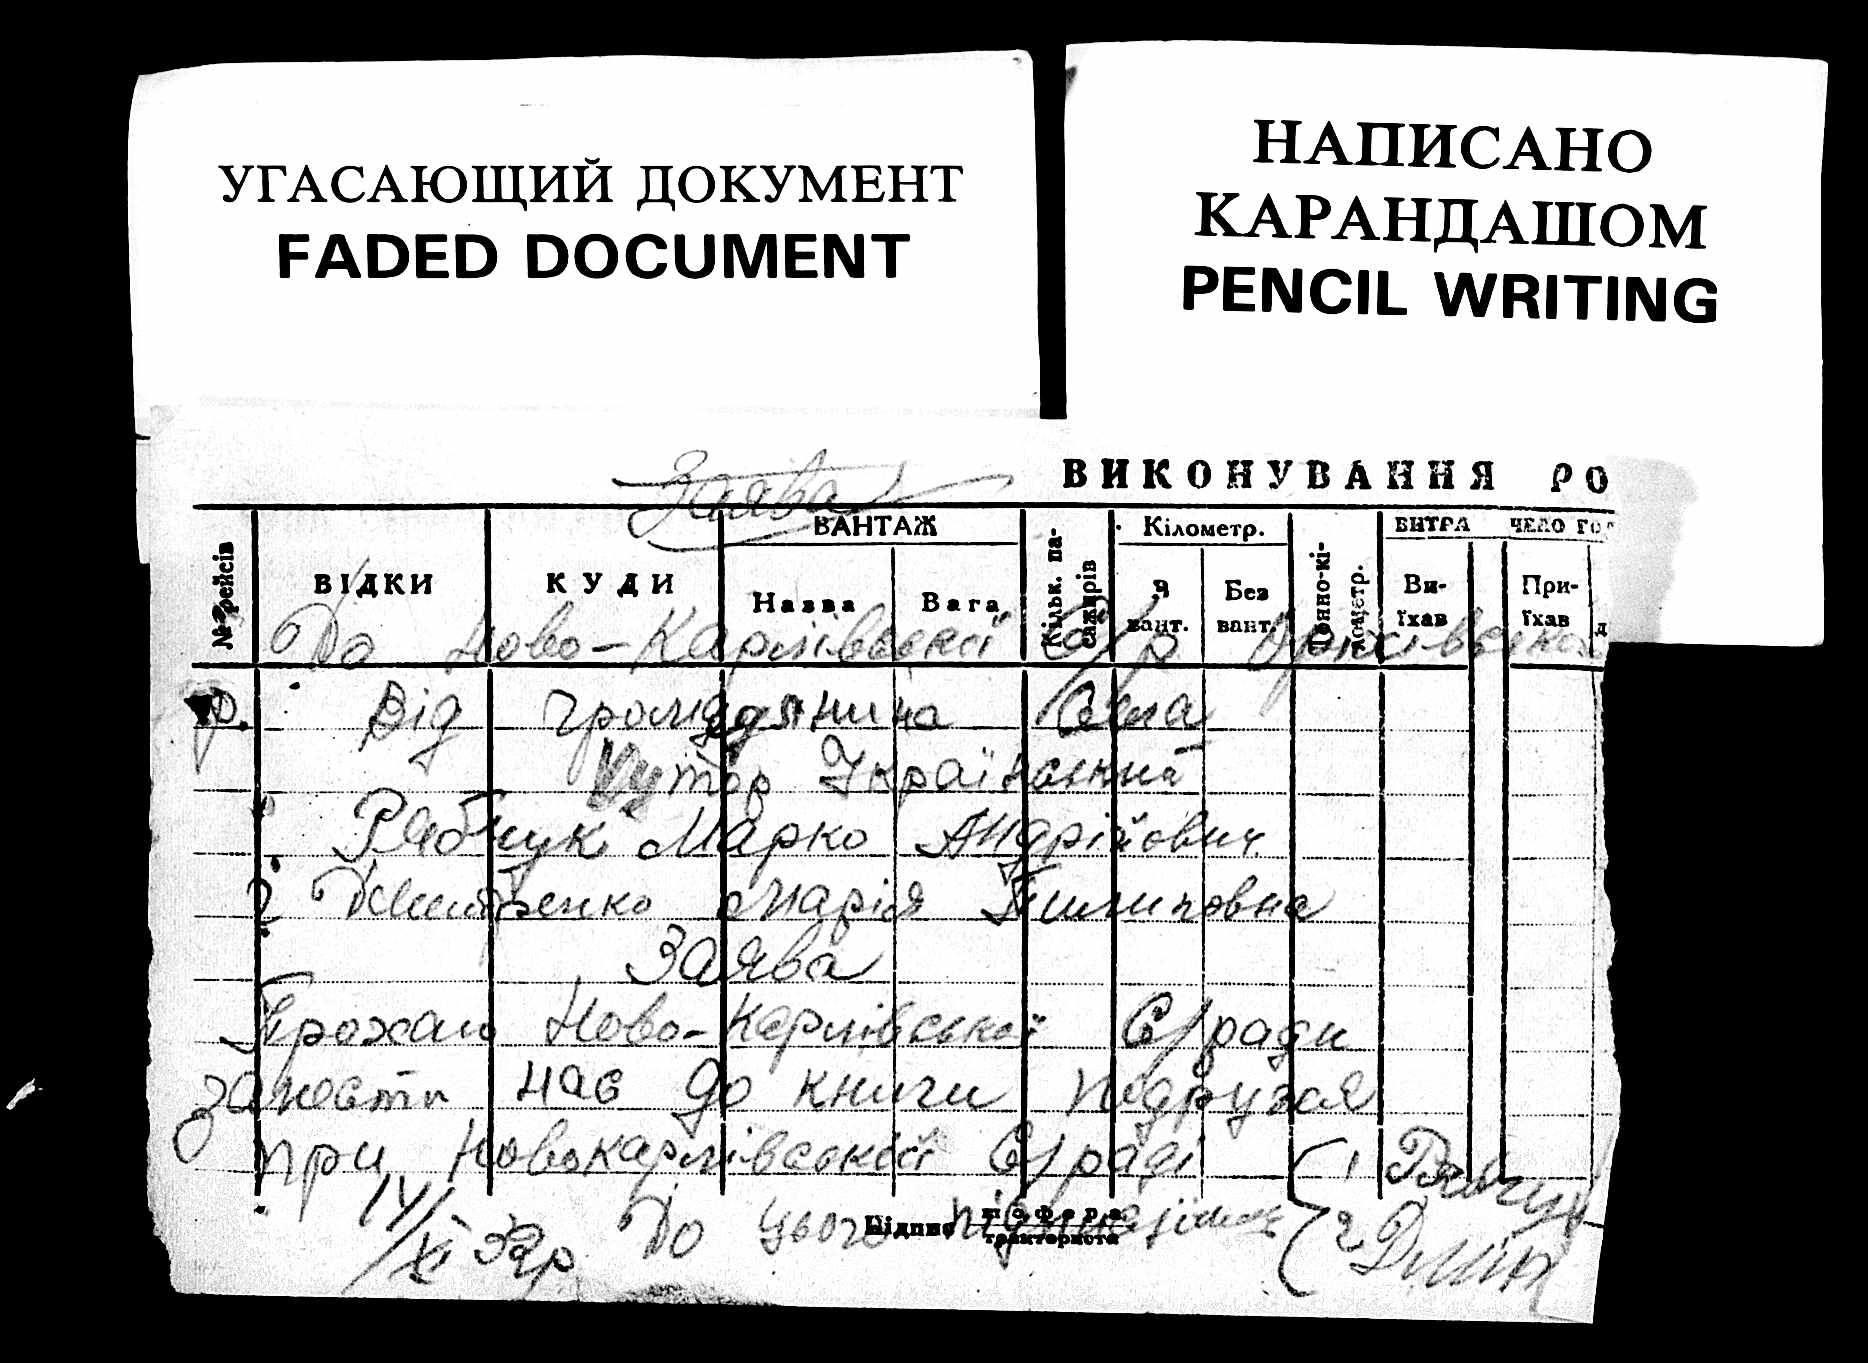 УГАСАЮЩИЙ ДОКУМЕНТ
FADED DOCUMENT
НАПИСАНО
КАРАНДАШОМ
PENCIL WRITING
Заява
ВИКОНУВАННЯ РО
№№ рейсів
ВІДКИ
КУДИ
ВАНТАЖ
Назва
Вага
Кільк. пасажирів
Кілометр.
З вант.
Без вант.
Тонно-кілометр.
ВИТРА ЧЕЛО ГО
Ви-їхав
При-їхав
До Ново-Карлівської С/р Оріхівсько
р. Від громадянина Села
Хутор Український
Рябчук Марко Андрійович
2 Дмитренко Марія Пилиповна
Заява
Прохаю Ново-Карлівської С/ради
занести нас до книги подружзя
при Новокарлівській С/раді (1 Рябчу
14/XI 32р До цього підписуємось
Підпис шофера тракториста
2